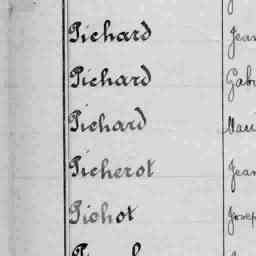 Pichard Jean
Pichard Gab
Pichard
Picherot Jean
Pichot Josep